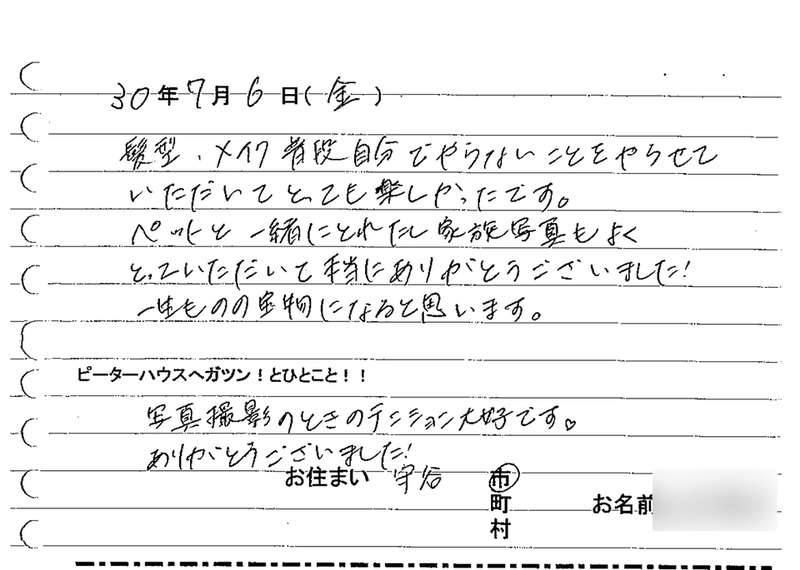 30年7月6日(金)
髪型、メイク普段自分でやらないことをやらせて
いただいてとっても楽しかったです。
ペットと一緒にとれたし家族写真もよく
とっていただいて本当にありがとうございました!
一生ものの宝物になると思います。
ピーターハウスへガツン!とひとこと!!
写真撮影のときのテンション大好です♡
ありがとうございました!
お住まい 守谷 市 町 村 お名前